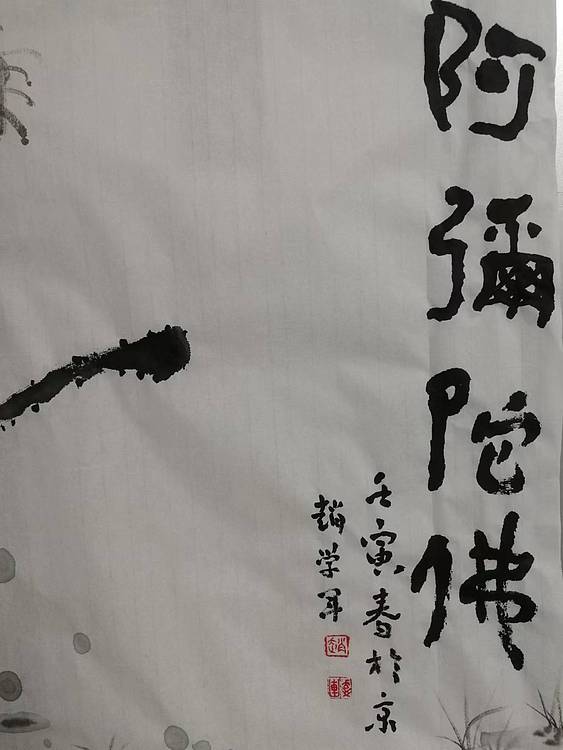 阿彌陀佛
壬寅春於京
趙学军